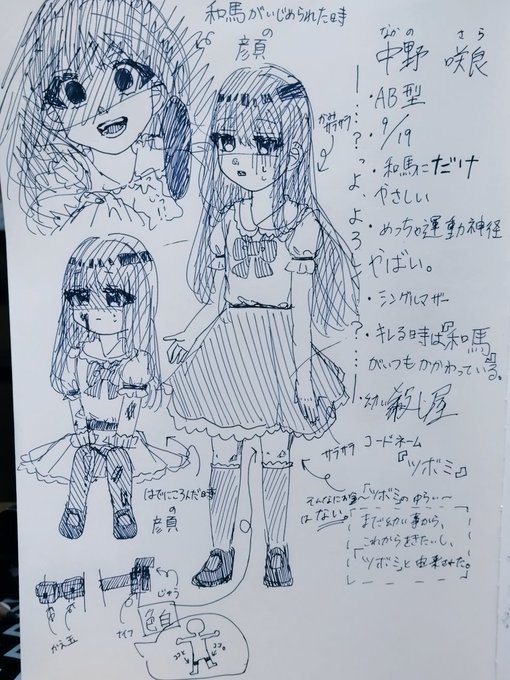 和馬がいじめられた時
の
顔
なかの さら
中野 咲良
・AB型
・9/19
・和馬にだけ
やさしい
・めっちゃ運動神経
やばい。
・シングルマザー
・キレる時は『和馬』
がいつもかかわっている。
・幼い殺し屋
コードネーム
『ツボミ』
〜ツボミのゆらい〜
まだ幼い事から、
これからさきたいし、
「ツボミ」と由来させた。
かみ
サラサラ
…？っよ、よろし…？…
サラサラ
そんなにお金
はない。
はでにころんだ時
の
顔
じゅう
ナイフ
かえ玉
色白
ココ
ココ。